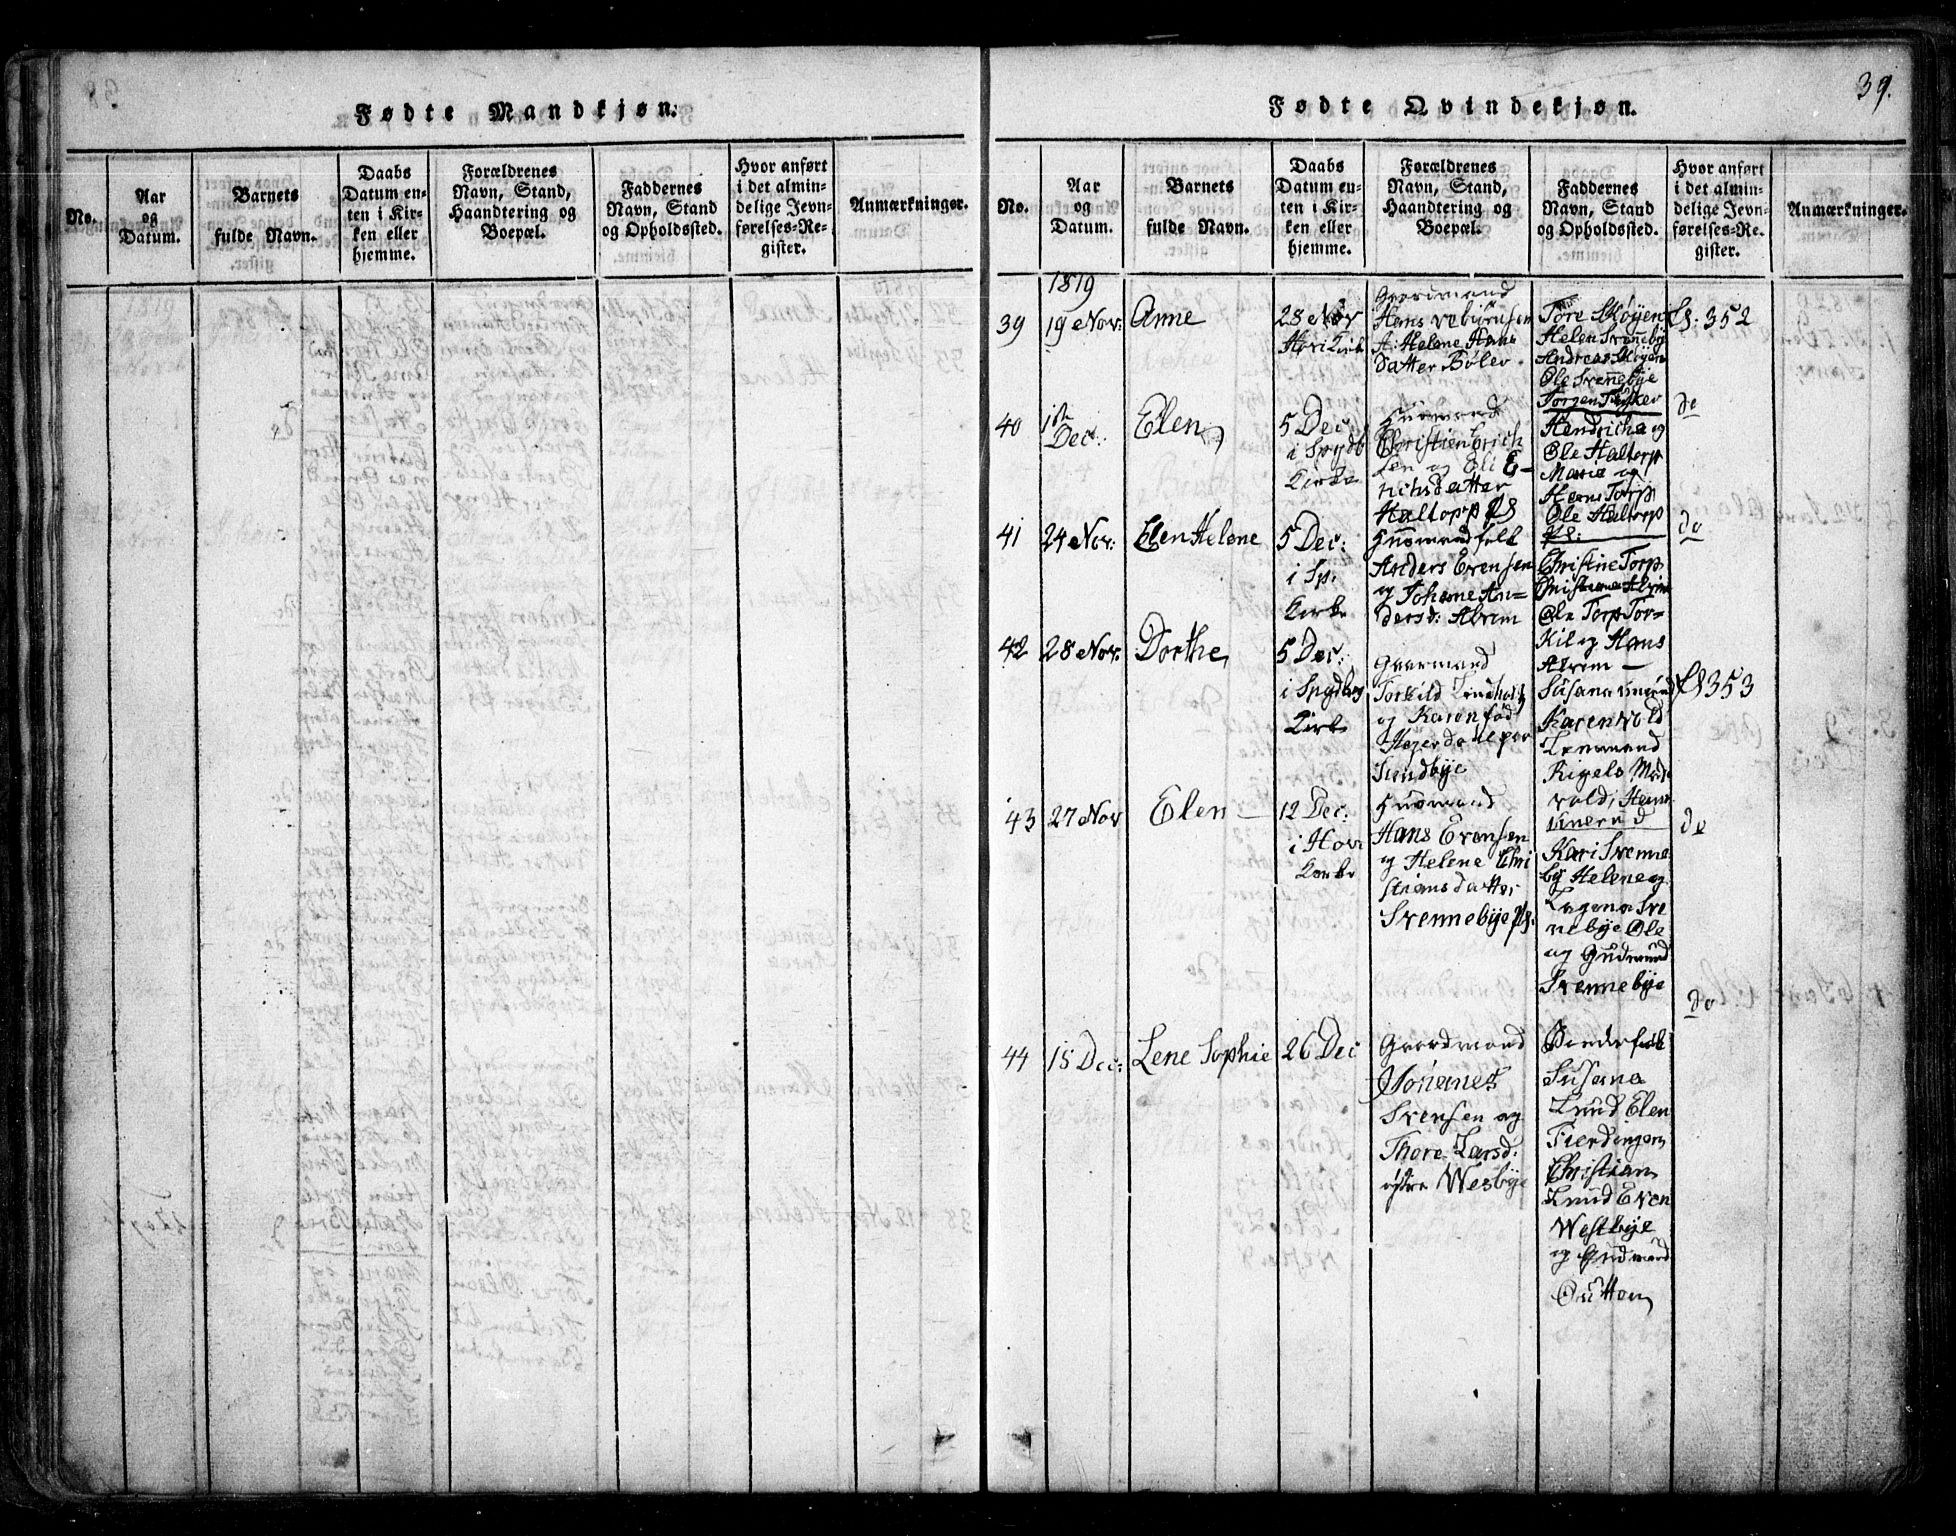 39.
Fødte Mandkjøn.
No.
Aar
og
Datum.
Barnets
fulde Navn.
Daabs
Datum en-
ten i Kir-
ken eller
hjemme.
Forældrenes
Navn, Stand,
Haandtering og
Boepæl.
Faddernes
Navn, Stand
og Opholdssted.
Hvor anført
i det almin-
delige Jevn-
førelses-Re-
gister.
Anmærkninger.
Fødte Qvindekjøn.
No.
Aar
og
Datum.
Barnets
fulde Navn.
Daabs
Datum en-
ten i Kir-
ken eller
hjemme.
Forældrenes
Navn, Stand,
Haandtering og
Boepæl.
Faddernes
Navn, Stand
og Opholdssted.
Hvor anført
i det almin-
delige Jevn-
førelses-Re-
gister.
Anmærkninger.
1819
39
19 Nov:
Anne
28 Nov
Hovi Kirk
Gaardmand
Hans
Helene Hans
datter Bøler
Tore Skøyen
Helen Svennebÿ
Andreas Skøyen
Ole Svennebye
Jørgen
352
40
Dec:
Elen
5 Dec
i Spydb
Kirke
Huusmand
Christien Erich
sen og Eli E-
richsdatter
Haltorp
Hendricha og
Ole Haltorp
Marie og
Hans Torp
Ole Haltorp
do
41
24 Nov:
Elen Helene
5 Dec:
i Sp.
Kirke
Huusmandfolk
Anders Evensen
og Johane An-
dersd: Alvim
Christine Torp
Alvim
Ole Torp Tor-
kil og Hans
Alvim
do
42
28 Nov.
Dorthe
5 Dec:
i Spydberg
Kirke
Gaarmand
Torkild Lindholt
og Karen fød
Sundbÿe
Susana
Karen Vold
Lensmand
Rigels
vold, Hans
353
43
27 Nov
Elen
12 Dec:
i Hovi
Kirke
Huusmand
Hans Evensen
og Helene Chri
stiansdatter
Svennebÿe
Kari Svenne
bÿ Helene og
Svennebye Ole
og Gudmund
Svennebÿe
do
44
15 Dec:
Lene Sophie
26 Dec
Gaardmand
Johanes
Svensen og
Thore Larsd:
østre Wesbÿe
Bønderfolk
Susana
Lund Elen
Fierdingen
Christian
Lund Even
Westbye
og Gudmund
do